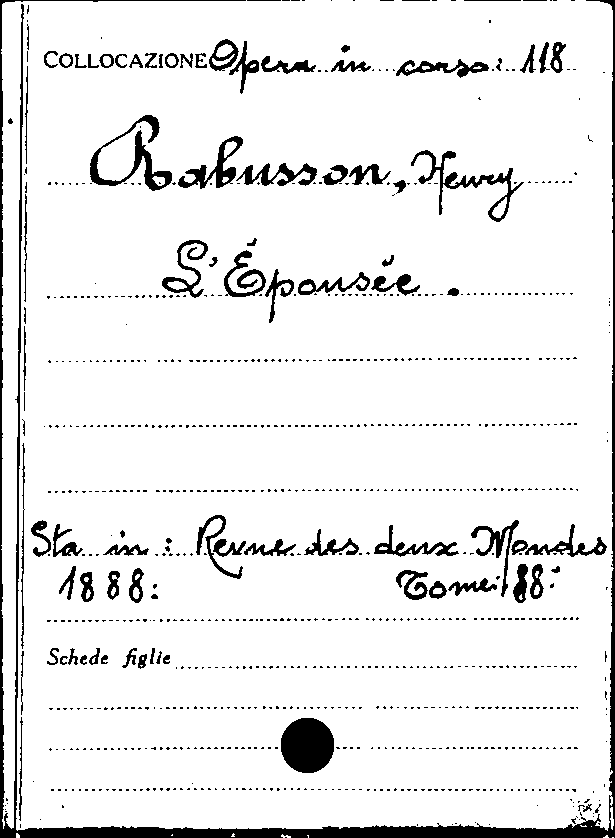 COLLOCAZIONE Opera in corso: 118
Rabusson, Henry
L'Épousée.
Sta in: Revue des deux Mondes
1888: Tome: 88:
Schede figlie